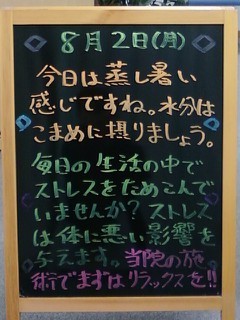 8月2日(月)
今日は蒸し暑い
感じですね。水分は
こまめに摂りましょう。
毎日の生活の中で
ストレスをためこんで
いませんか?ストレス
は体に悪い影響を
与えます。当院の施
術でまずはリラックスを!!